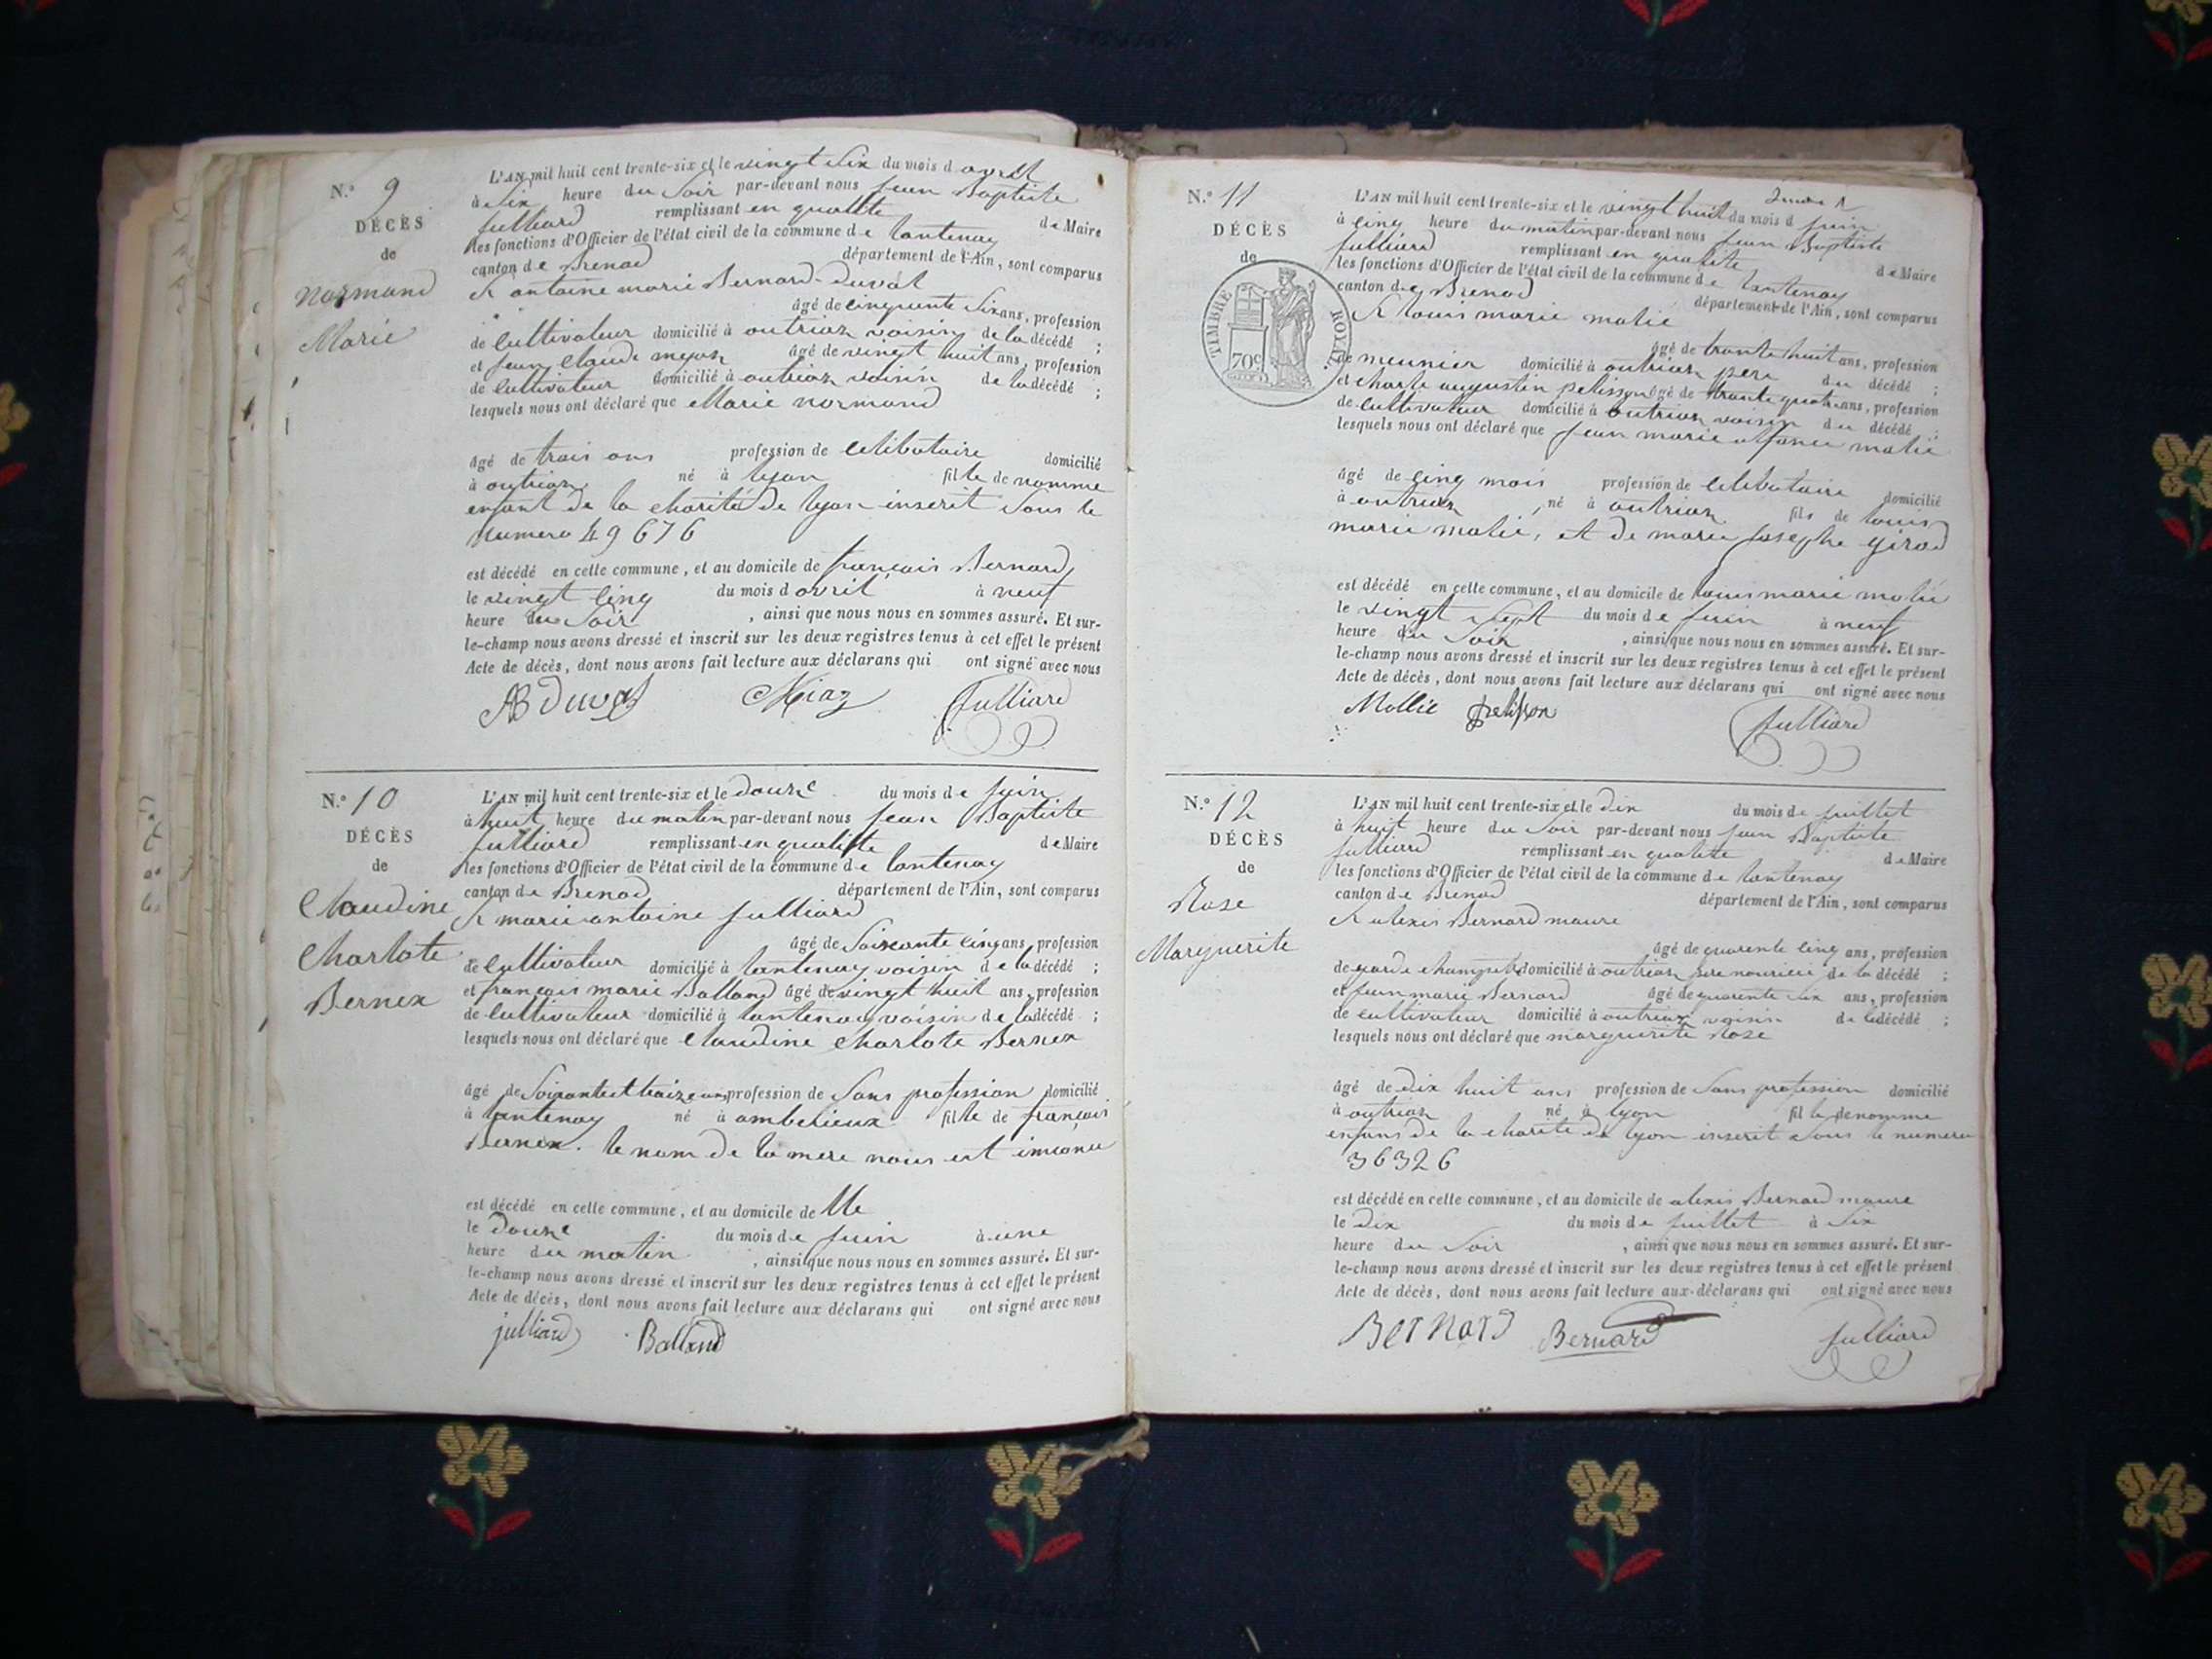 N.º 9
DÉCÈS
de
Normand
Marie
L'AN mil huit cent trente-six et le vingt six du mois d avril
à six heure du soir par-devant nous jean Baptiste
julliard remplissant en qualite de Maire
les fonctions d'Officier de l'état civil de la commune de lantenay
canton de Brenod département de l'Ain, sont comparus
St antoine marie Bernard-duval
âgé de cinquente six ans, profession
de cultivateur domicilié à outriaz voisin de la décédé ;
et jean claude âgé de vingt huit ans, profession
de cultivateur domicilié à outriaz voisin de la décédé ;
lesquels nous ont déclaré que Marie normand
âgé de trois ans profession de celibataire domicilié
à outriaz né à lyon fille de nomme
enfant de la charité de lyon inscrit sous le
numero 49676
est décédé en cette commune, et au domicile de francois Bernard
le vingt cinq du mois d avril à neuf
heure du soir, ainsi que nous nous en sommes assuré. Et sur-
le-champ nous avons dressé et inscrit sur les deux registres tenus à cet effet le présent
Acte de décès, dont nous avons fait lecture aux déclarans qui ont signé avec nous
AB Duval Miaz julliard
N.º 10
DÉCÈS
de
Claudine
Charlote
Bernex
L'AN mil huit cent trente-six et le douze du mois de juin
à huit heure du matin par-devant nous jean Baptiste
julliard remplissant en qualitte de Maire
les fonctions d'Officier de l'état civil de la commune de lantenay
canton de Brenod département de l'Ain, sont comparus
St marie antoine julliard
âgé de soixante cinq ans, profession
de cultivateur domicilié à lantenay voisin de la décédé ;
et françois marie Balland âgé de vingt huit ans, profession
de cultivateur domicilié à lantenay voisin de la décédé ;
lesquels nous ont déclaré que Claudine Charlote Bernex
âgé de soixante et treize ans profession de sans profession domicilié
à lantenay né à amberieux fille de françois
Bernex. le nom de la mere nous est inconu
est décédé en cette commune, et au domicile de
le douze du mois de juin à une
heure du matin, ainsi que nous nous en sommes assuré. Et sur-
le-champ nous avons dressé et inscrit sur les deux registres tenus à cet effet le présent
Acte de décès, dont nous avons fait lecture aux déclarans qui ont signé avec nous
julliard Balland
N.º 11
DÉCÈS
de
TIMBRE ROYAL
70c
L'AN mil huit cent trente-six et le vingt huit du mois d juin
à cinq heure du matin par-devant nous jean Baptiste
julliard remplissant en qualite de Maire
les fonctions d'Officier de l'état civil de la commune de lantenay
canton de Brenod département de l'Ain, sont comparus
St louis marie molie
âgé de trante huit ans, profession
de meunier domicilié à outriaz pere du décédé ;
et charle augustin pelisson âgé de trante quatre ans, profession
de cultivateur domicilié à outriaz voisin du décédé ;
lesquels nous ont déclaré que jean marie molie
âgé de cinq mois profession de celibataire domicilié
à outriaz, né à outriaz fils de louis
marie molie, et de marie josephe girod
est décédé en cette commune, et au domicile de louis marie molie
le vingt sept du mois de juin à neuf
heure du soir, ainsi que nous nous en sommes assuré. Et sur-
le-champ nous avons dressé et inscrit sur les deux registres tenus à cet effet le présent
Acte de décès, dont nous avons fait lecture aux déclarans qui ont signé avec nous
Mollie pelisson julliard
N.º 12
DÉCÈS
de
Rose
Marguerite
L'AN mil huit cent trente-six et le dix du mois de juillet
à huit heure du soir par-devant nous jean Baptiste
julliard remplissant en qualite de Maire
les fonctions d'Officier de l'état civil de la commune de lantenay
canton de Brenod département de l'Ain, sont comparus
St alexis Bernard maure
âgé de quarente cinq ans, profession
de garde champetre domicilié à outriaz pere nouricie de la décédé ;
et jean marie Bernard âgé de quarente six ans, profession
de cultivateur domicilié à outriaz voisin de la décédé ;
lesquels nous ont déclaré que marguerite Rose
âgé de dix huit ans profession de sans profession domicilié
à outriaz né à lyon fille de nomme
enfans de la charite de lyon inscrit sous le numero
36326
est décédé en cette commune, et au domicile de alexis Bernard maure
le dix du mois de juillet à six
heure du soir, ainsi que nous nous en sommes assuré. Et sur-
le-champ nous avons dressé et inscrit sur les deux registres tenus à cet effet le présent
Acte de décès, dont nous avons fait lecture aux déclarans qui ont signé avec nous
BERNARD Bernard julliard